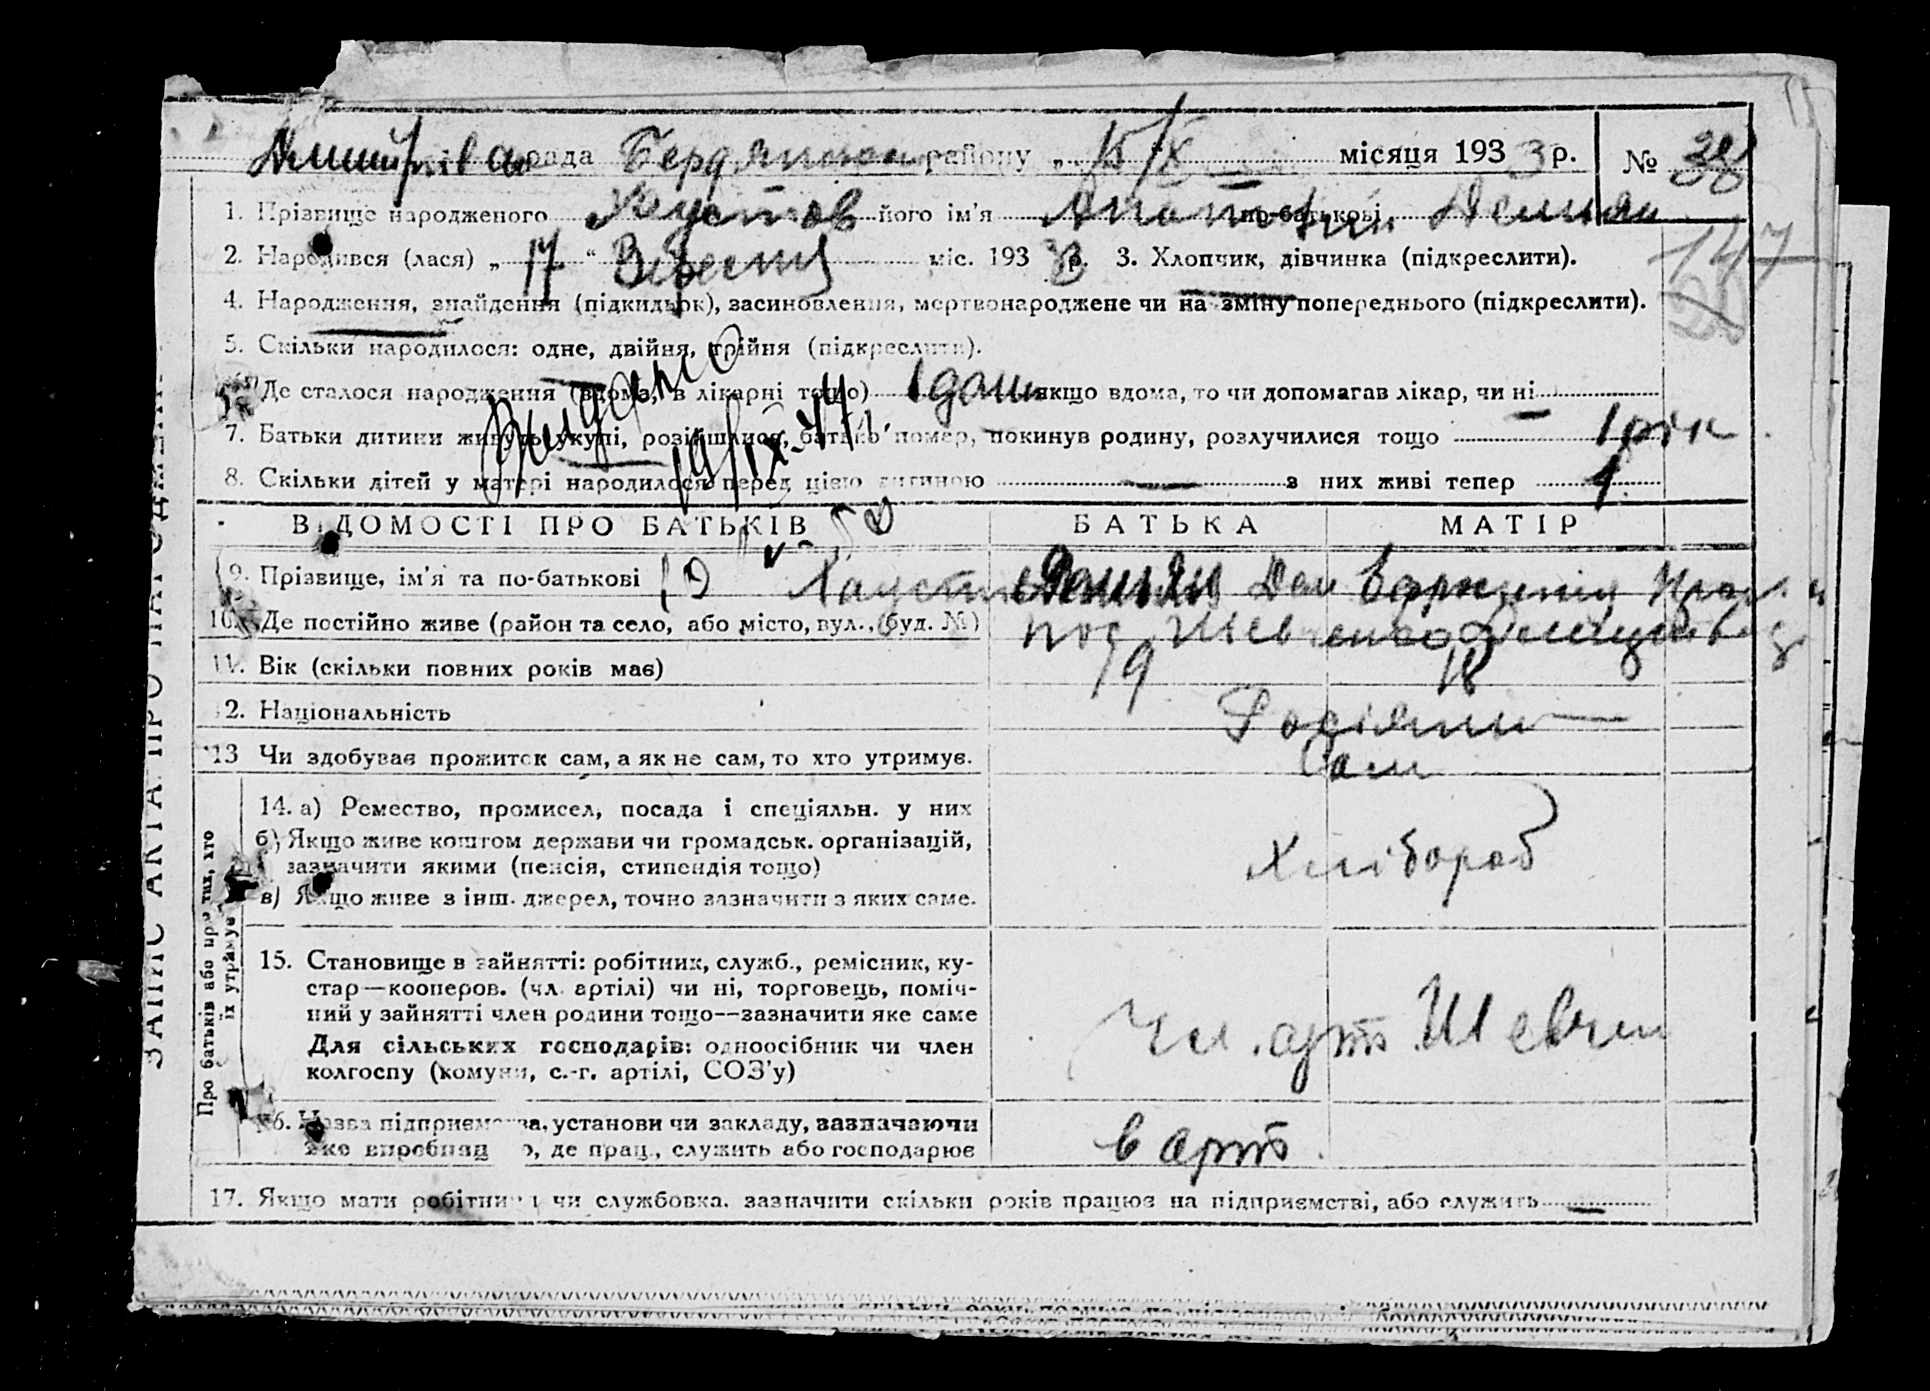 рада Бердянськ району „ 15/X місяця 193 3 р. № 38
1. Прізвище народженого Хаустов його ім'я Анатолій по-батькові Демян
2. Народився (лася) „ 17 “ Вересня міс. 193 3 р. 3. Хлопчик, дівчинка (підкреслити).
147
4. Народження, знайдення (підкидьок), засиновлення, мертвонароджене чи на зміну попереднього (підкреслити).
5. Скільки народилося: одне, двійня, трійня (підкреслити).
6. Де сталося народження (вдома, в лікарні тощо) вдома якщо вдома, то чи допомагав лікар, чи ні
7. Батьки дитини живуть укупі, розійшлися, батько помер, покинув родину, розлучилися тощо 1 рік
8. Скільки дітей у матері народилося перед цією дитиною — з них живі тепер 1
19/IX-44
ВІДОМОСТІ ПРО БАТЬКІВ БАТЬКА МАТІР
9. Прізвище, ім'я та по-батькові Хаустов Демян
10. Де постійно живе (район та село, або місто, вул., буд. №) пос. Шевченко
11. Вік (скільки повних років має) 19 18
12. Національність Росіяни —
13 Чи здобуває прожиток сам, а як не сам, то хто утримує. Сам
14. а) Ремество, промисел, посада і спеціяльн. у них
б) Якщо живе коштом держави чи громадськ. організацій,
зазначити якими (пенсія, стипендія тощо)
в) Якщо живе з інш. джерел, точно зазначити з яких саме.
Хлібороб
15. Становище в зайнятті: робітник, служб., ремісник, ку-
стар—кооперов. (чл. артілі) чи ні, торговець, поміч-
ний у зайнятті член родини тощо—зазначити яке саме
Для сільських господарів: одноосібник чи член
колгоспу (комуни, с.-г. артілі, СОЗ'у)
Чл. арт. Шевчен
16. Назва підприємства, установи чи закладу, зазначаючи
яке виробниц о, де прац., служить або господарює
в арт.
17. Якщо мати робітниця чи службовка, зазначити скільки років працює на підприємстві, або служить —
ЗАПИС АКТА ПРО НАРОДЖЕННЯ
Про батьків або про тих, хто
їх утримує